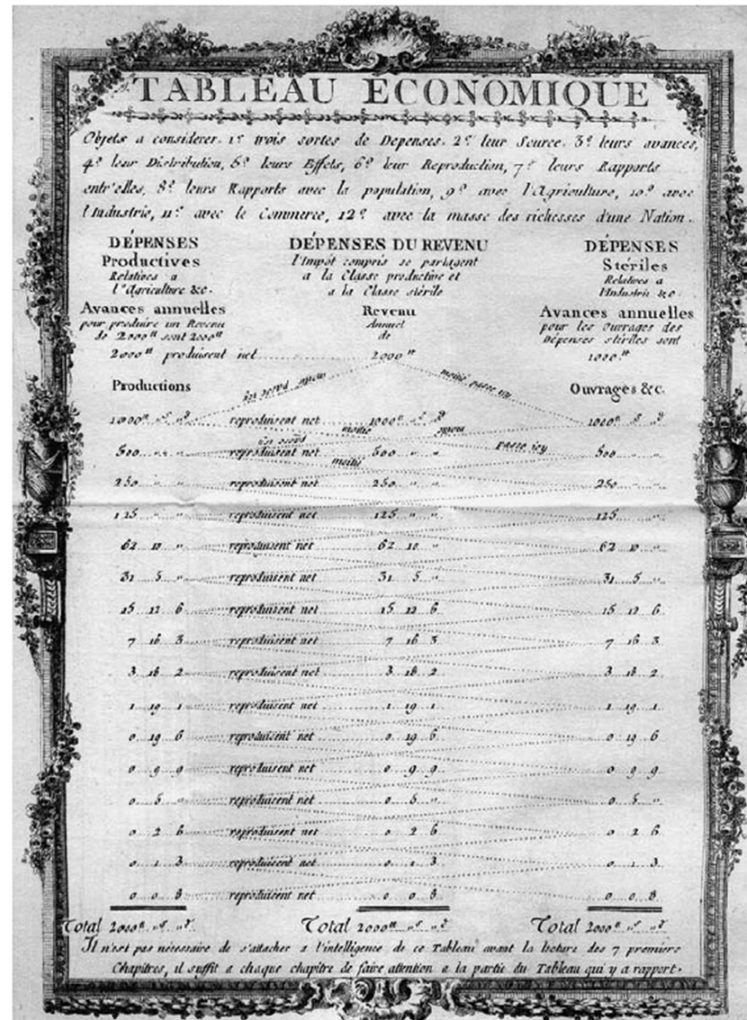 TABLEAU ECONOMIQUE
Objets a considerer. 1º trois sortes de Depenses. 2º leur Source. 3º leurs avances,
4º leur Distribution, 5º leurs Effets, 6º leur Reproduction, 7º leurs Rapports
entr'elles, 8º leurs Rapports avec la population, 9º avec l'Agriculture, 10º avec
l'Industrie, 11º avec le Commerce, 12º avec la masse des richesses d'une Nation.
DÉPENSES DÉPENSES DU REVENU DÉPENSES
Productives l'Impôt compris se partagent Stériles
Relatives a a la Classe productive et Relatives a
l'Agriculture &c. a la Classe stérile l'Industrie &c.
Avances annuelles Revenu Avances annuelles
pour produire un Revenu Annuel pour les Ouvrages des
de 2000tt sont 2000tt de Dépenses stériles sont
2000tt produisent net 2000tt 1000tt
Productions moitié passe icy Ouvrages &c.
1000tt reproduisent net 1000tt 1000tt
moitié
500 reproduisent net 500 passe icy 500
moitié
250 reproduisent net 250 250
125 reproduisent net 125 125
62 10 reproduisent net 62 10 62 10
31 5 reproduisent net 31 5 31 5
15 12 6 reproduisent net 15 12 6 15 12 6
7 16 3 reproduisent net 7 16 3 7 16 3
3 18 2 reproduisent net 3 18 2 3 18 2
1 19 1 reproduisent net 1 19 1 1 19 1
0 19 6 reproduisent net 0 19 6 0 19 6
0 9 9 reproduisent net 0 9 9 0 9 9
0 5 reproduisent net 0 5 0 5
0 2 6 reproduisent net 0 2 6 0 2 6
0 1 3 reproduisent net 0 1 3 0 1 3
0 0 8 reproduisent net 0 0 8 0 0 8
Total 2000tt Total 2000tt Total 2000tt
Il n'est pas nécessaire de s'attacher a l'intelligence de ce Tableau avant la lecture des 7 premiers
Chapitres, il suffit a chaque chapitre de faire attention a la partie du Tableau qui y a rapport.